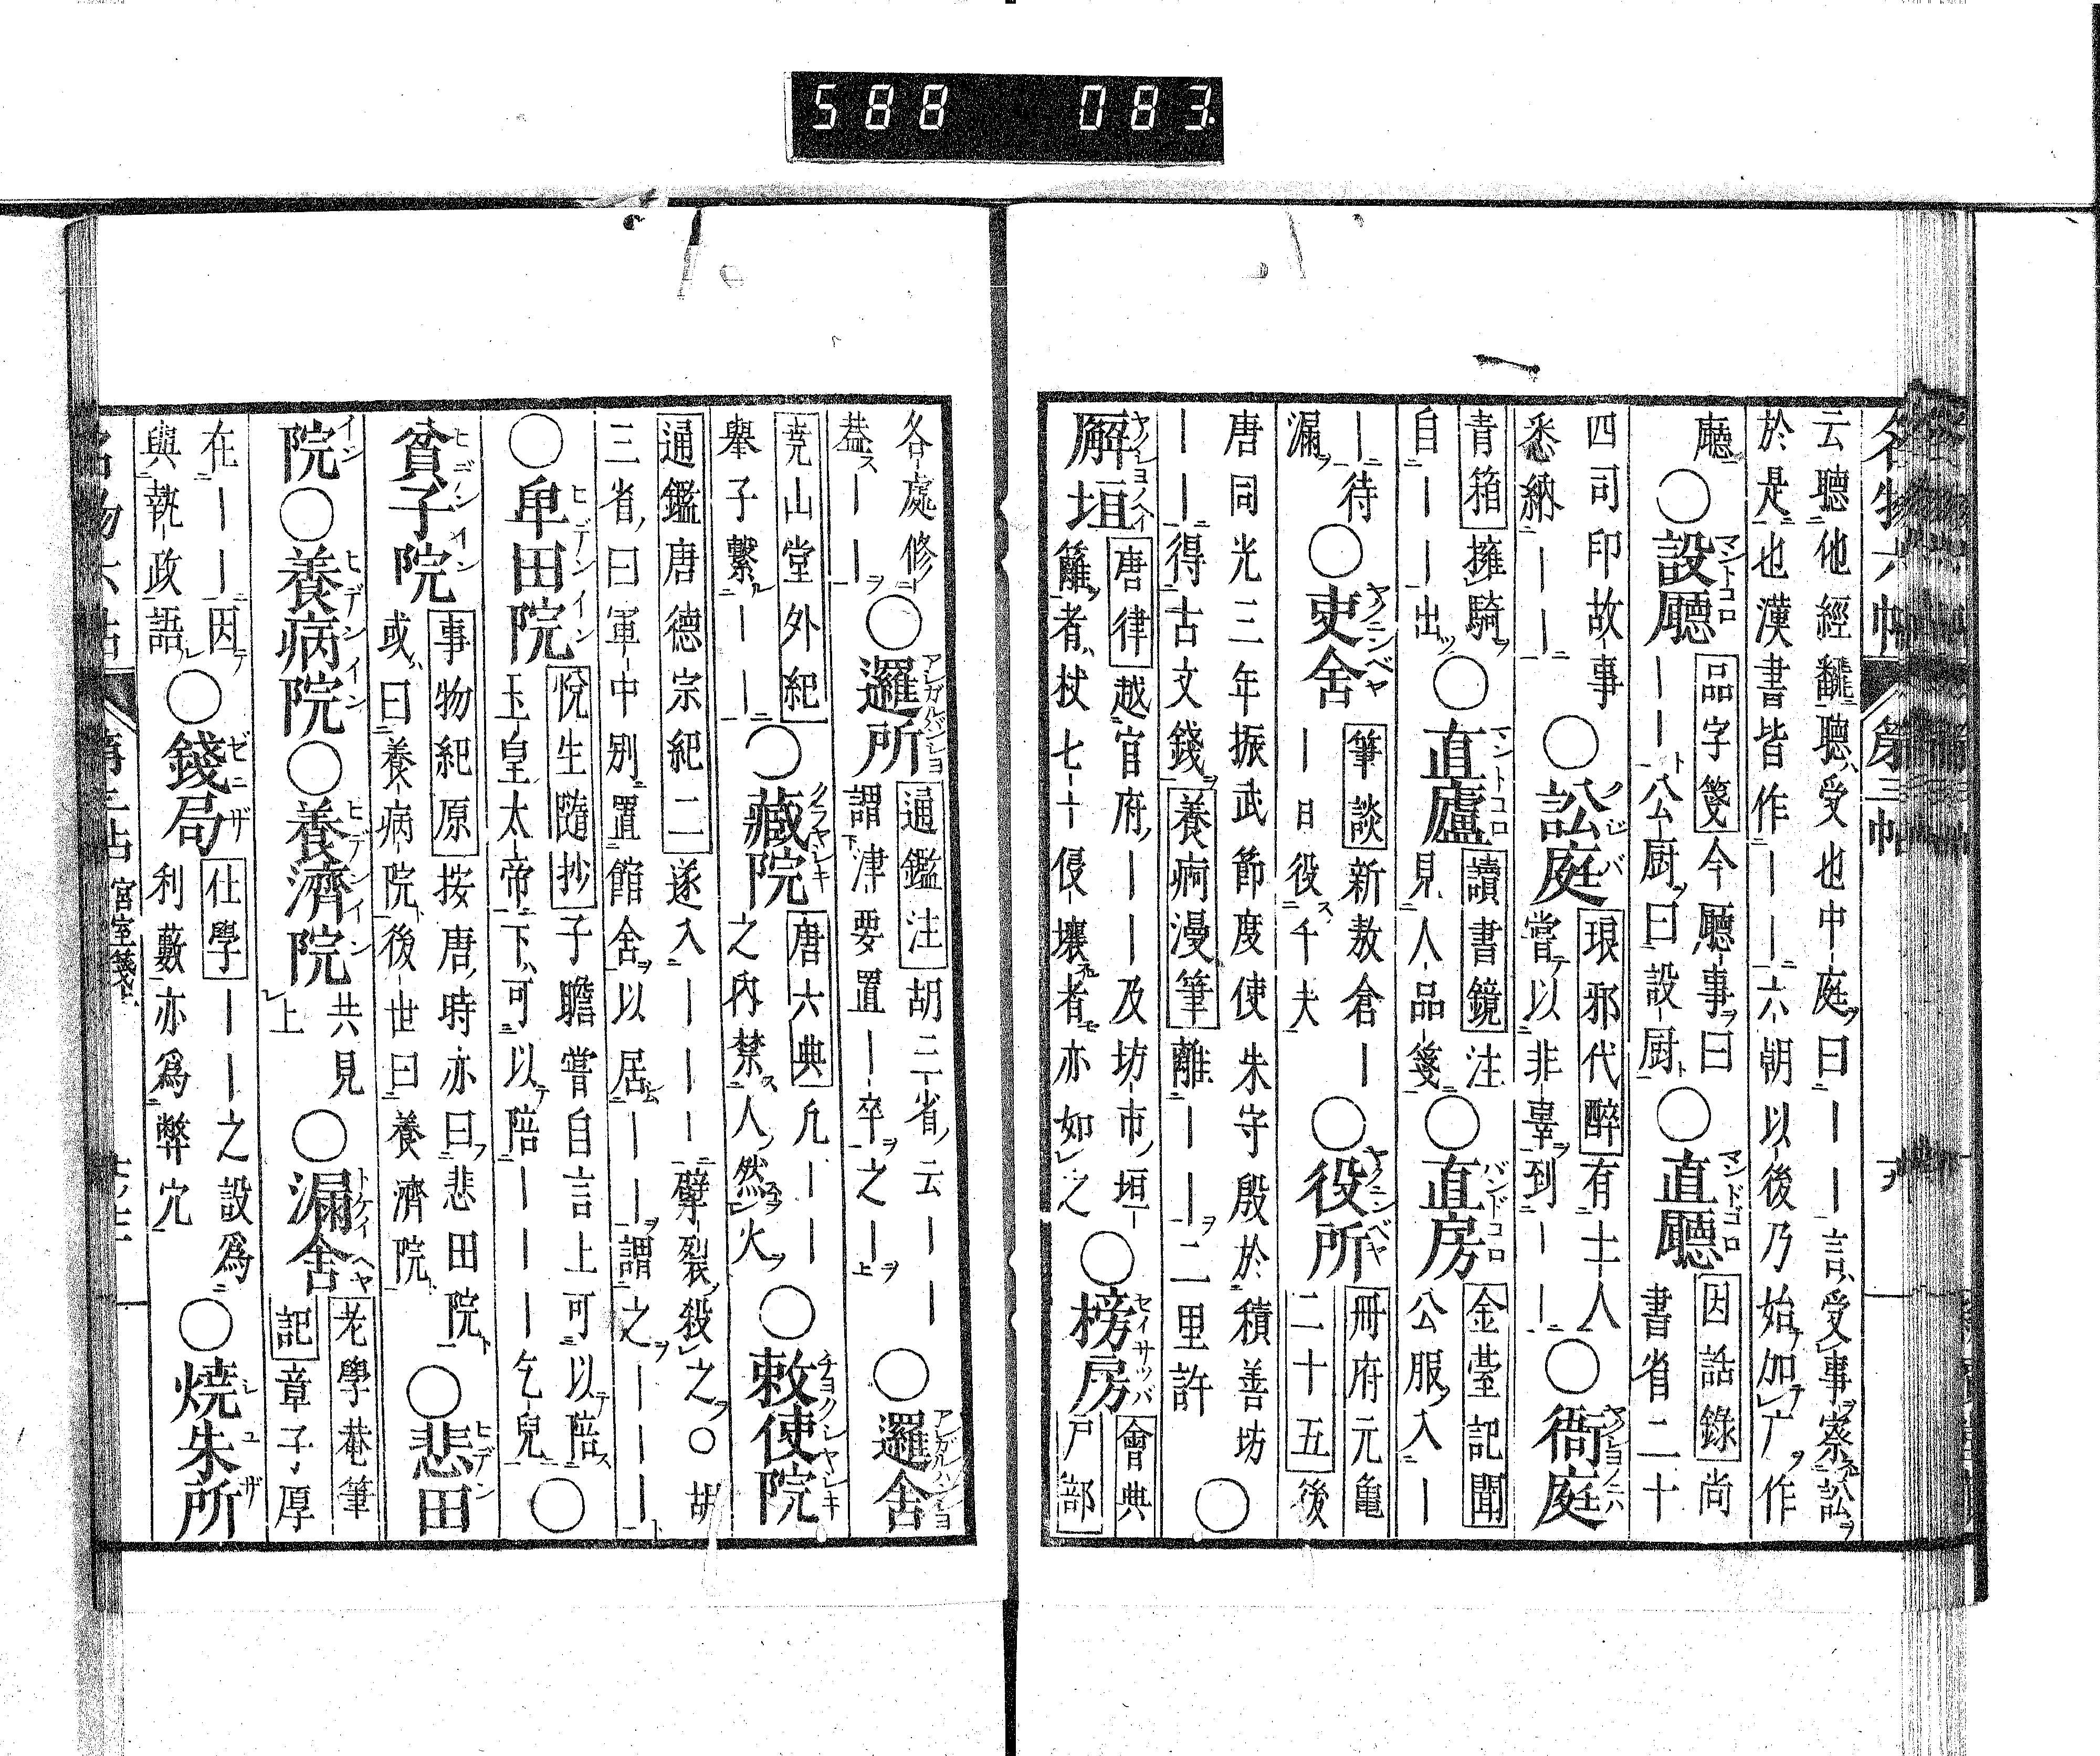 588 083
名物六帖 第三帖
云聽他經飜聽受也中庭曰――言受事察訟
於是也漢書皆作――六朝以後乃始加广作
廳○設廳 品字箋 今廳事曰――公厨曰設厨○直廳 因話錄 尚書省二十
四司印故事悉納――○訟庭 琅邪代醉 有士人嘗以非辜到――○衙庭
青箱 擁騎自――出○直廬 讀書鏡 注見人品箋○直房 金臺記聞 公服入―
―待漏○吏舍 筆談 新敖倉――日役千夫○役所 冊府元亀 二十五 後
唐同光三年振武節度使朱守殷於積善坊
――得古文錢 養痾漫筆 離――二里許○
廨垣 唐律 越官府――及坊市垣籬者杖七十侵壞者亦如之○榜房 會典 戸部
各處修葢――○邏所 通鑑注 胡三省云――謂津要置―卒之―○邏舍
堯山堂外紀 舉子繫――○藏院 唐六典 凡――之內禁人然火○敕使院
通鑑唐德宗紀二 遂入――擘裂殺之○胡
三省曰軍中別置館舍以居――謂之―――
○卑田院 悅生隨抄 子瞻嘗自言上可以陪玉皇太帝下可以陪―――乞兒○
貧子院 事物紀原 按唐時亦曰悲田院或曰養病院後世曰養濟院○悲田
院○養病院○養濟院 共見上○漏舍 老學菴筆記 章子厚
在――因與執政語○錢局 仕學 ――之設爲利藪亦爲弊宂○燒朱所
名物六帖 第三帖 宮室箋